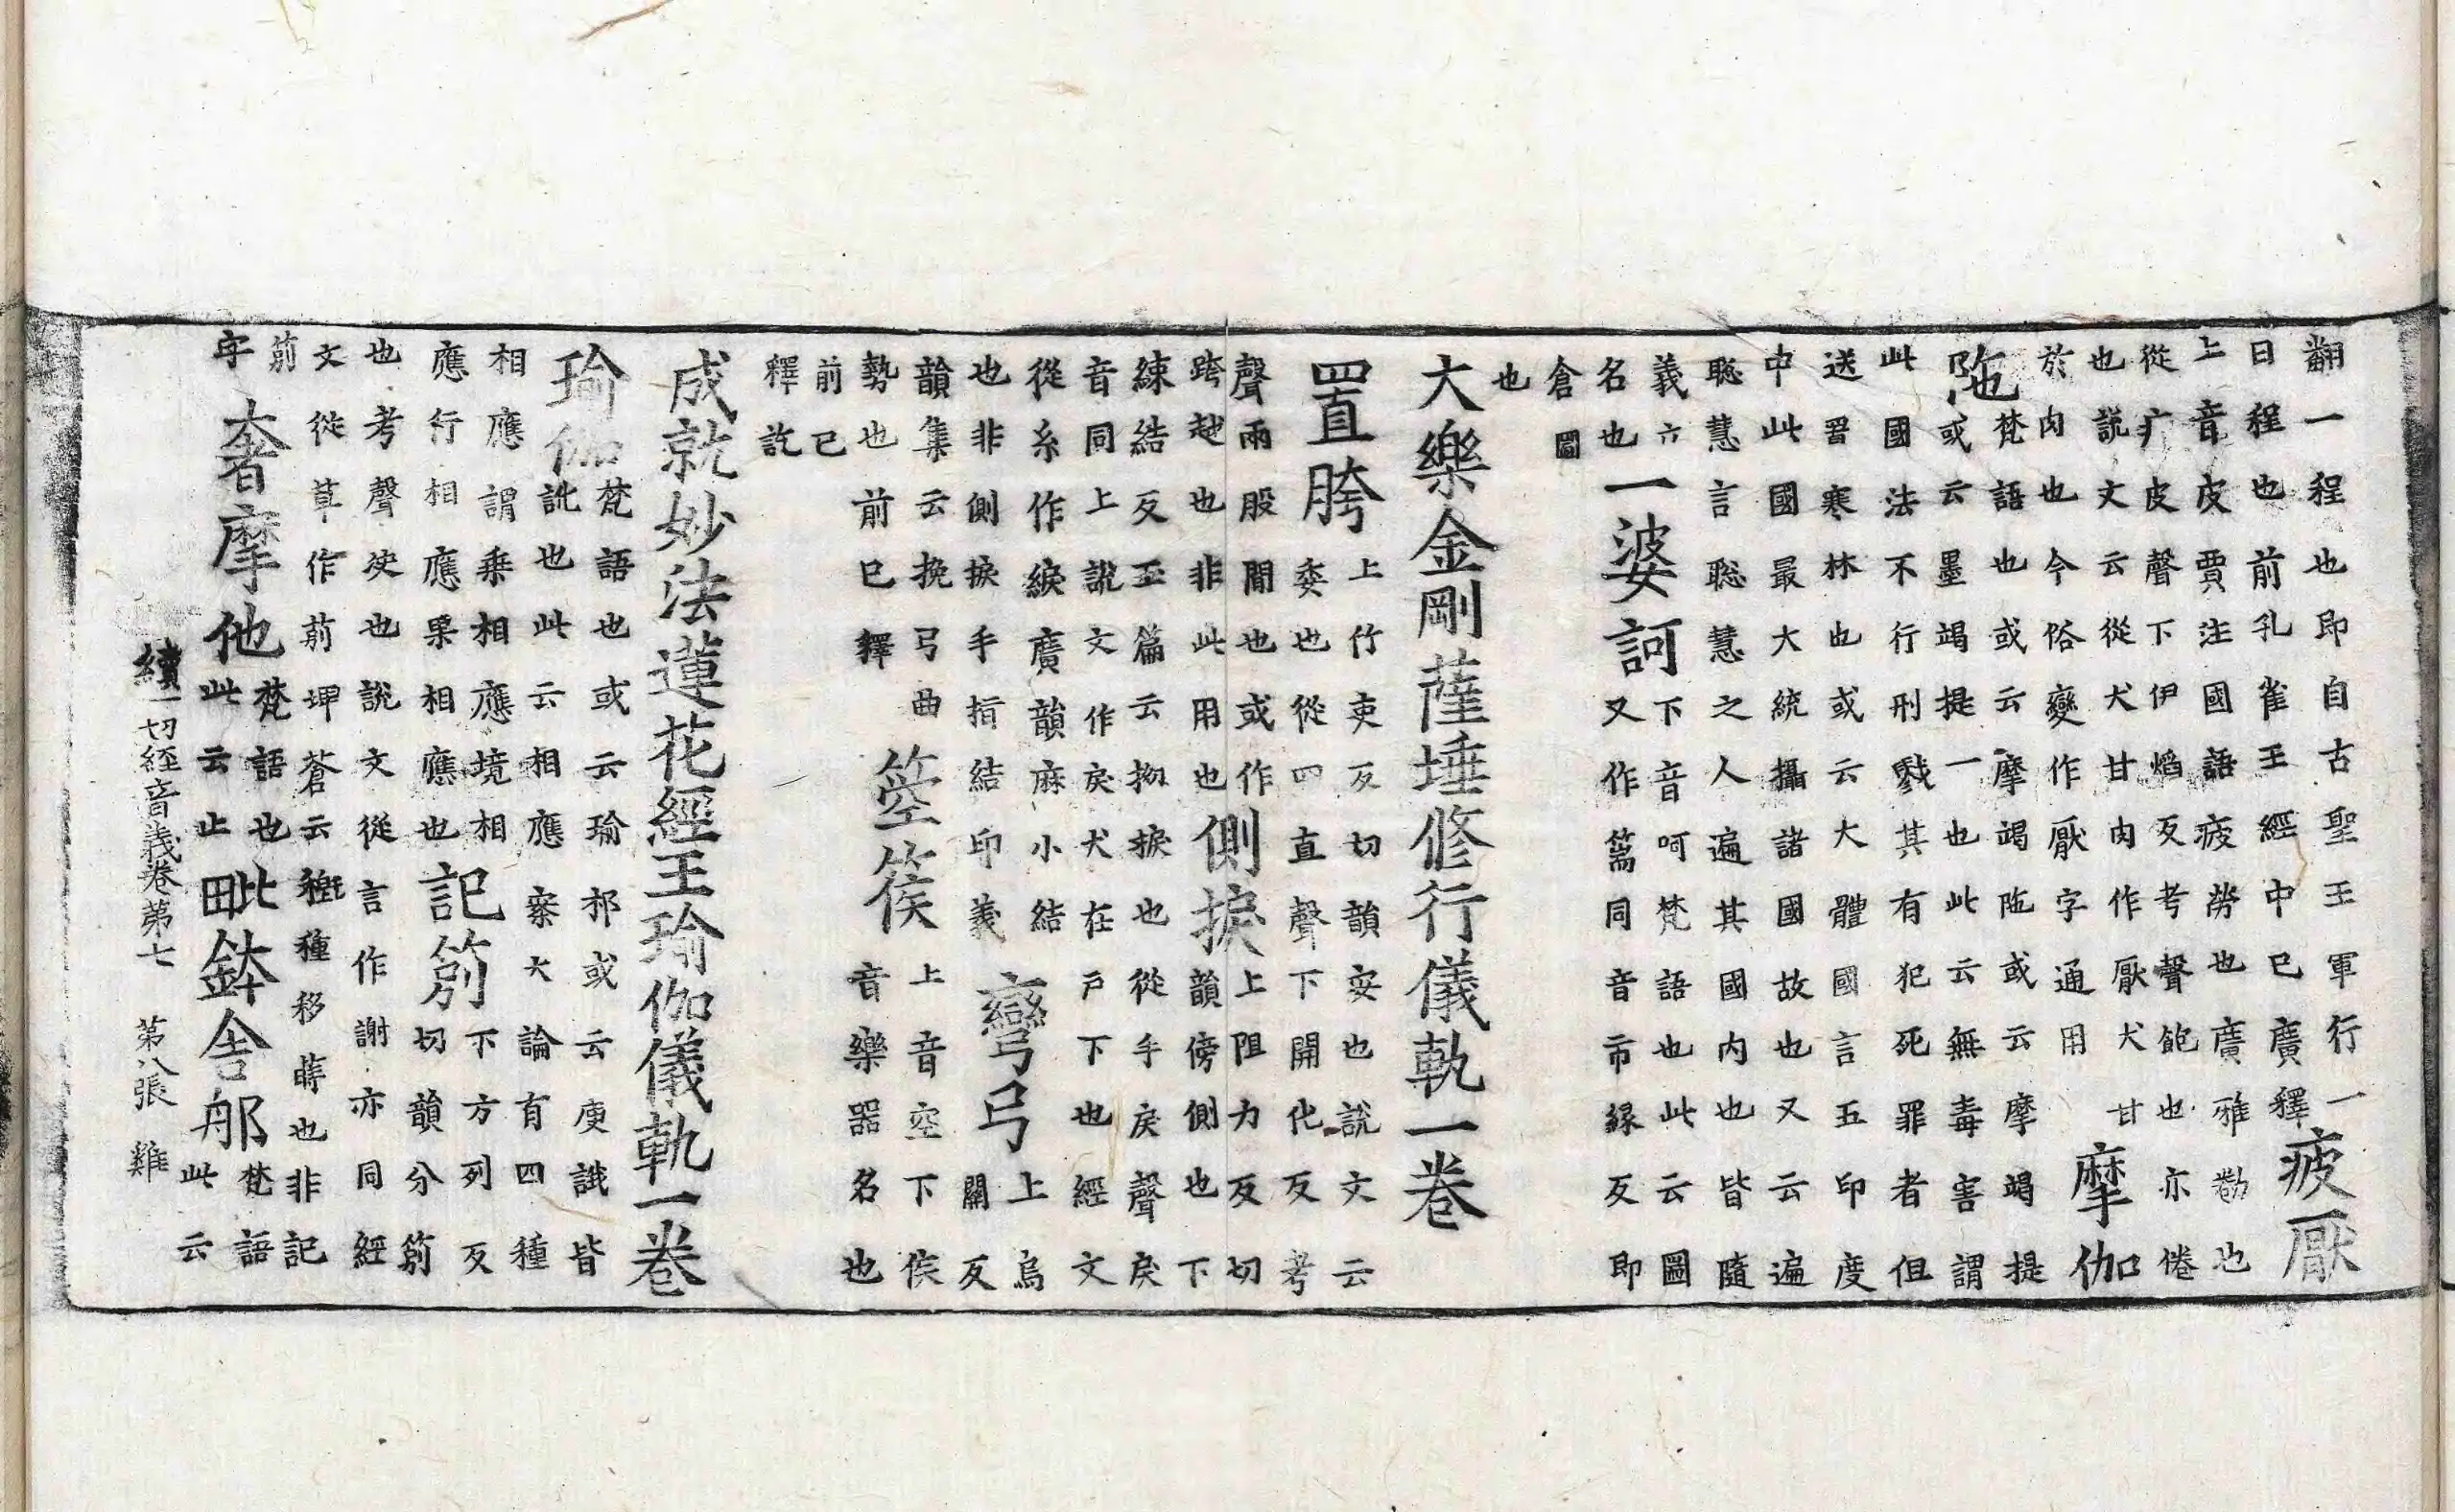 翻一程也即自古聖王軍行一
日程也前孔雀王經中已廣釋
疲厭
上音皮賈注國語疲勞也廣雅勌也
從疒皮聲下伊焰反考聲飽也亦倦
也說文云從犬甘肉作厭犬甘
於肉也今俗變作厭字通用
摩伽
陁
梵語也或云摩竭陁或云摩竭提
或云墨竭提一也此云無毒害謂
此國法不行刑戮其有犯死罪者但
送置寒林也或云大體國言五印度
中此國最大統攝諸國故也又云遍
聡慧言聡慧之人遍其國內也皆隨
義六
名也
一婆訶
下音呵梵語也此云圖
又作篅同音市緣反即
倉圖
也
大樂金剛薩埵修行儀軌一卷
置胯
上竹吏反切韻安也說文云
委也從四直聲下開化反考
聲兩股間也或作
跨越也非此用也
側捩
上阻力反切
韻傍側也下
練結反玉篇云拗捩也從手戾聲戾
音同上說文作戾犬在戶下也經文
從糸作綟廣韻麻小結
也非側捩手指結印義
彎弓
上烏
關反
韻集云挽弓曲
勢也前已釋
箜篌
上音空下侯
音樂器名也
前已
釋訖
成就妙法蓮花經王瑜伽儀軌一卷
瑜伽
梵語也或云瑜祁或云庾誐皆
訛也此云相應案大論有四種
相應謂乘相應境相
應行相應果相應也
記莂
下方列反
切韻分莂
也考聲決也說文從言作謝亦同經
文從草作莂埤蒼云穊種移蒔也非記
莂
字
奢摩他
梵語也
此云止
毗鉢舍郍
梵語
此云
續一切經音義卷第七　第八張　雞